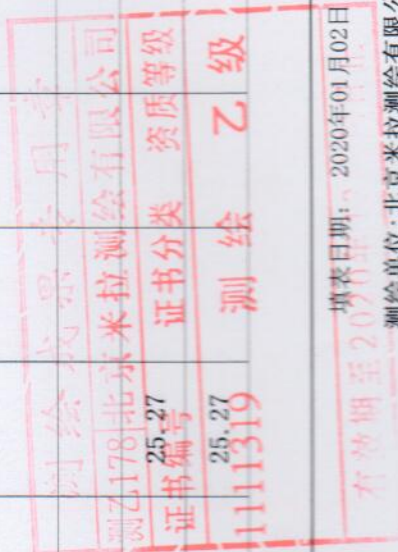 测绘成果专用章
测乙178 北京米拉测绘有限公司
证书编号 证书分类 资质等级
1111319 测绘 乙级
25.27
25.27
填表日期：2020年01月02日
有效期至2020年
测绘单位：北京米拉测绘有限公